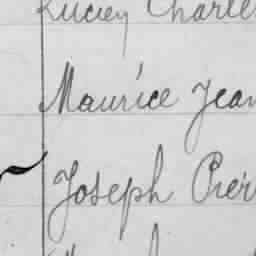 Lucien Charles
Maurice Jean
Joseph Pier